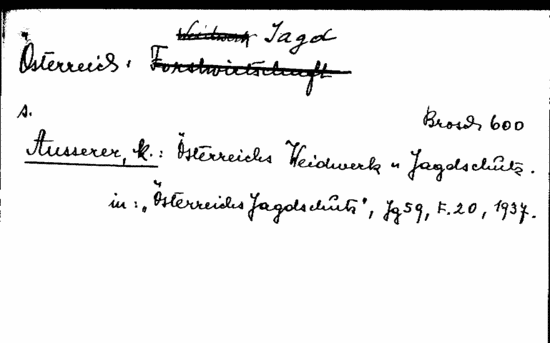 Weidwerk Jagd
Österreich: Forstwirtschaft
s.
Brosch 600
Ausserer, K.: Österreichs Weidwerk u Jagdschutz.
in: „Österreichs Jagdschutz", Jg 59, F. 20, 1937.